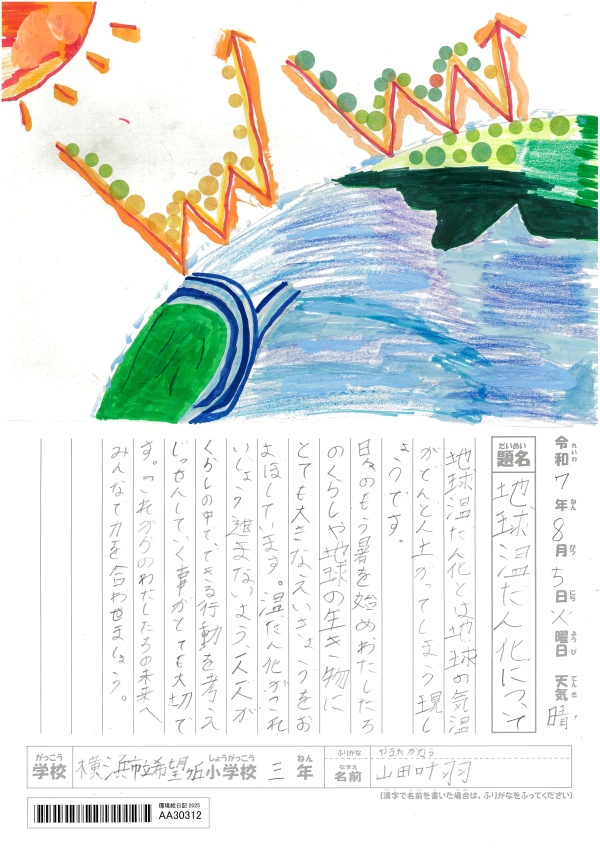 令和7年8月5日火曜日 天気 晴
れいわ ねん がつ にち ようび てんき
だいめい
題名 地球温だん化について
地球温だん化とは地球の気温
がどんどん上がってしまう現し
ょうです。
日々のもう暑を始めわたしたち
のくらしや地球の生き物に
とても大きなえいきょうをお
よぼしています。温だん化がこれ
いじょう進まないよう一人一人が
くらしの中で、できる行動を考え
じっせんしていく事がとても大切で
す。これからのわたしたちの未来へ
みんなで力を合わせましょう。
がっこう しょうがっこう ねん
学校 横浜市立希望ヶ丘小学校 三年
ふりがな やまだ かなう
なまえ
名前 山田叶羽
(漢字で名前を書いた場合は、ふりがなをふってください)
環境絵日記 2025
AA30312